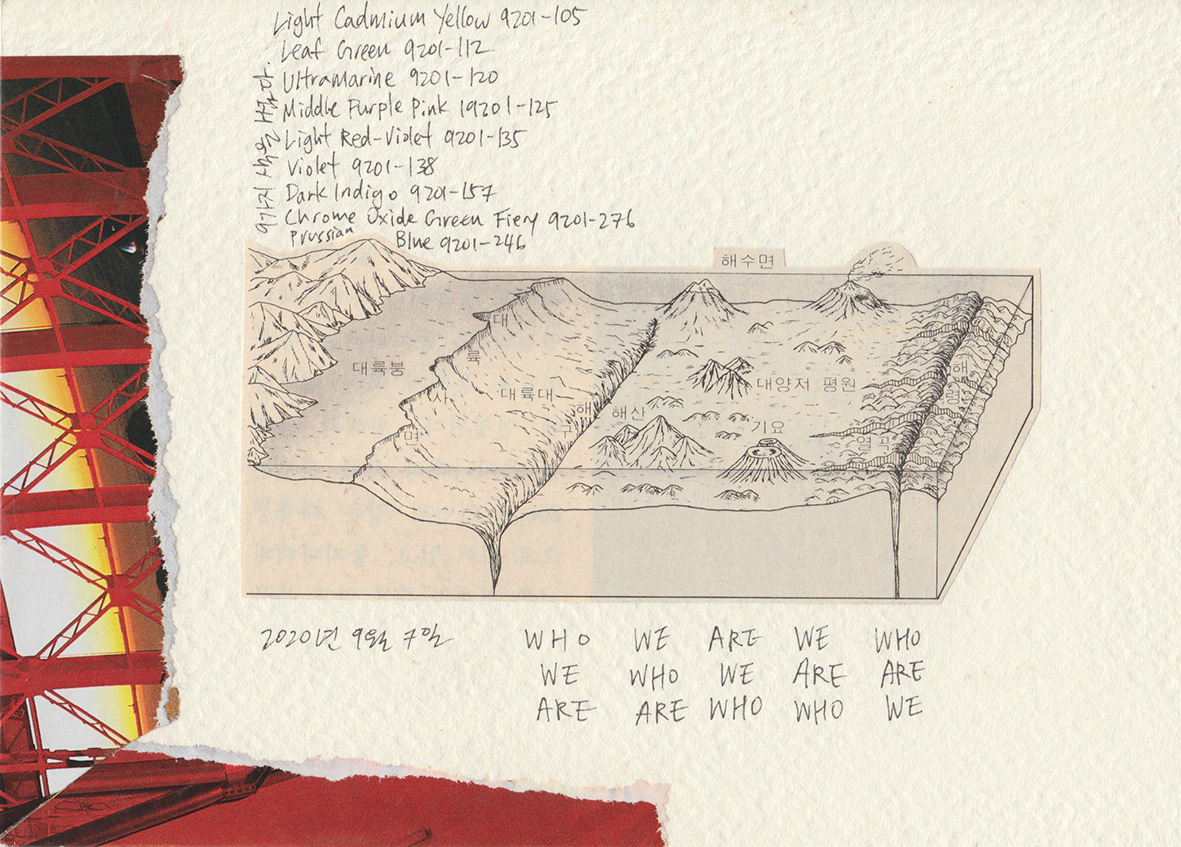 Light Cadmium Yellow 9201-105
Leaf Green 9201-112
Ultramarine 9201-120
Middle Purple Pink 19201-125
Light Red-Violet 9201-135
Violet 9201-138
Dark Indigo 9201-157
Chrome Oxide Green Fiery 9201-276
Prussian Blue 9201-246
9가지 색을
해수면
대륙사면
대륙붕
대륙대
해구
해산
대양저 평원
기요
해령
2020년 9월 7일
WHO WE ARE WE WHO
WE WHO WE ARE ARE
ARE ARE WHO WHO WE